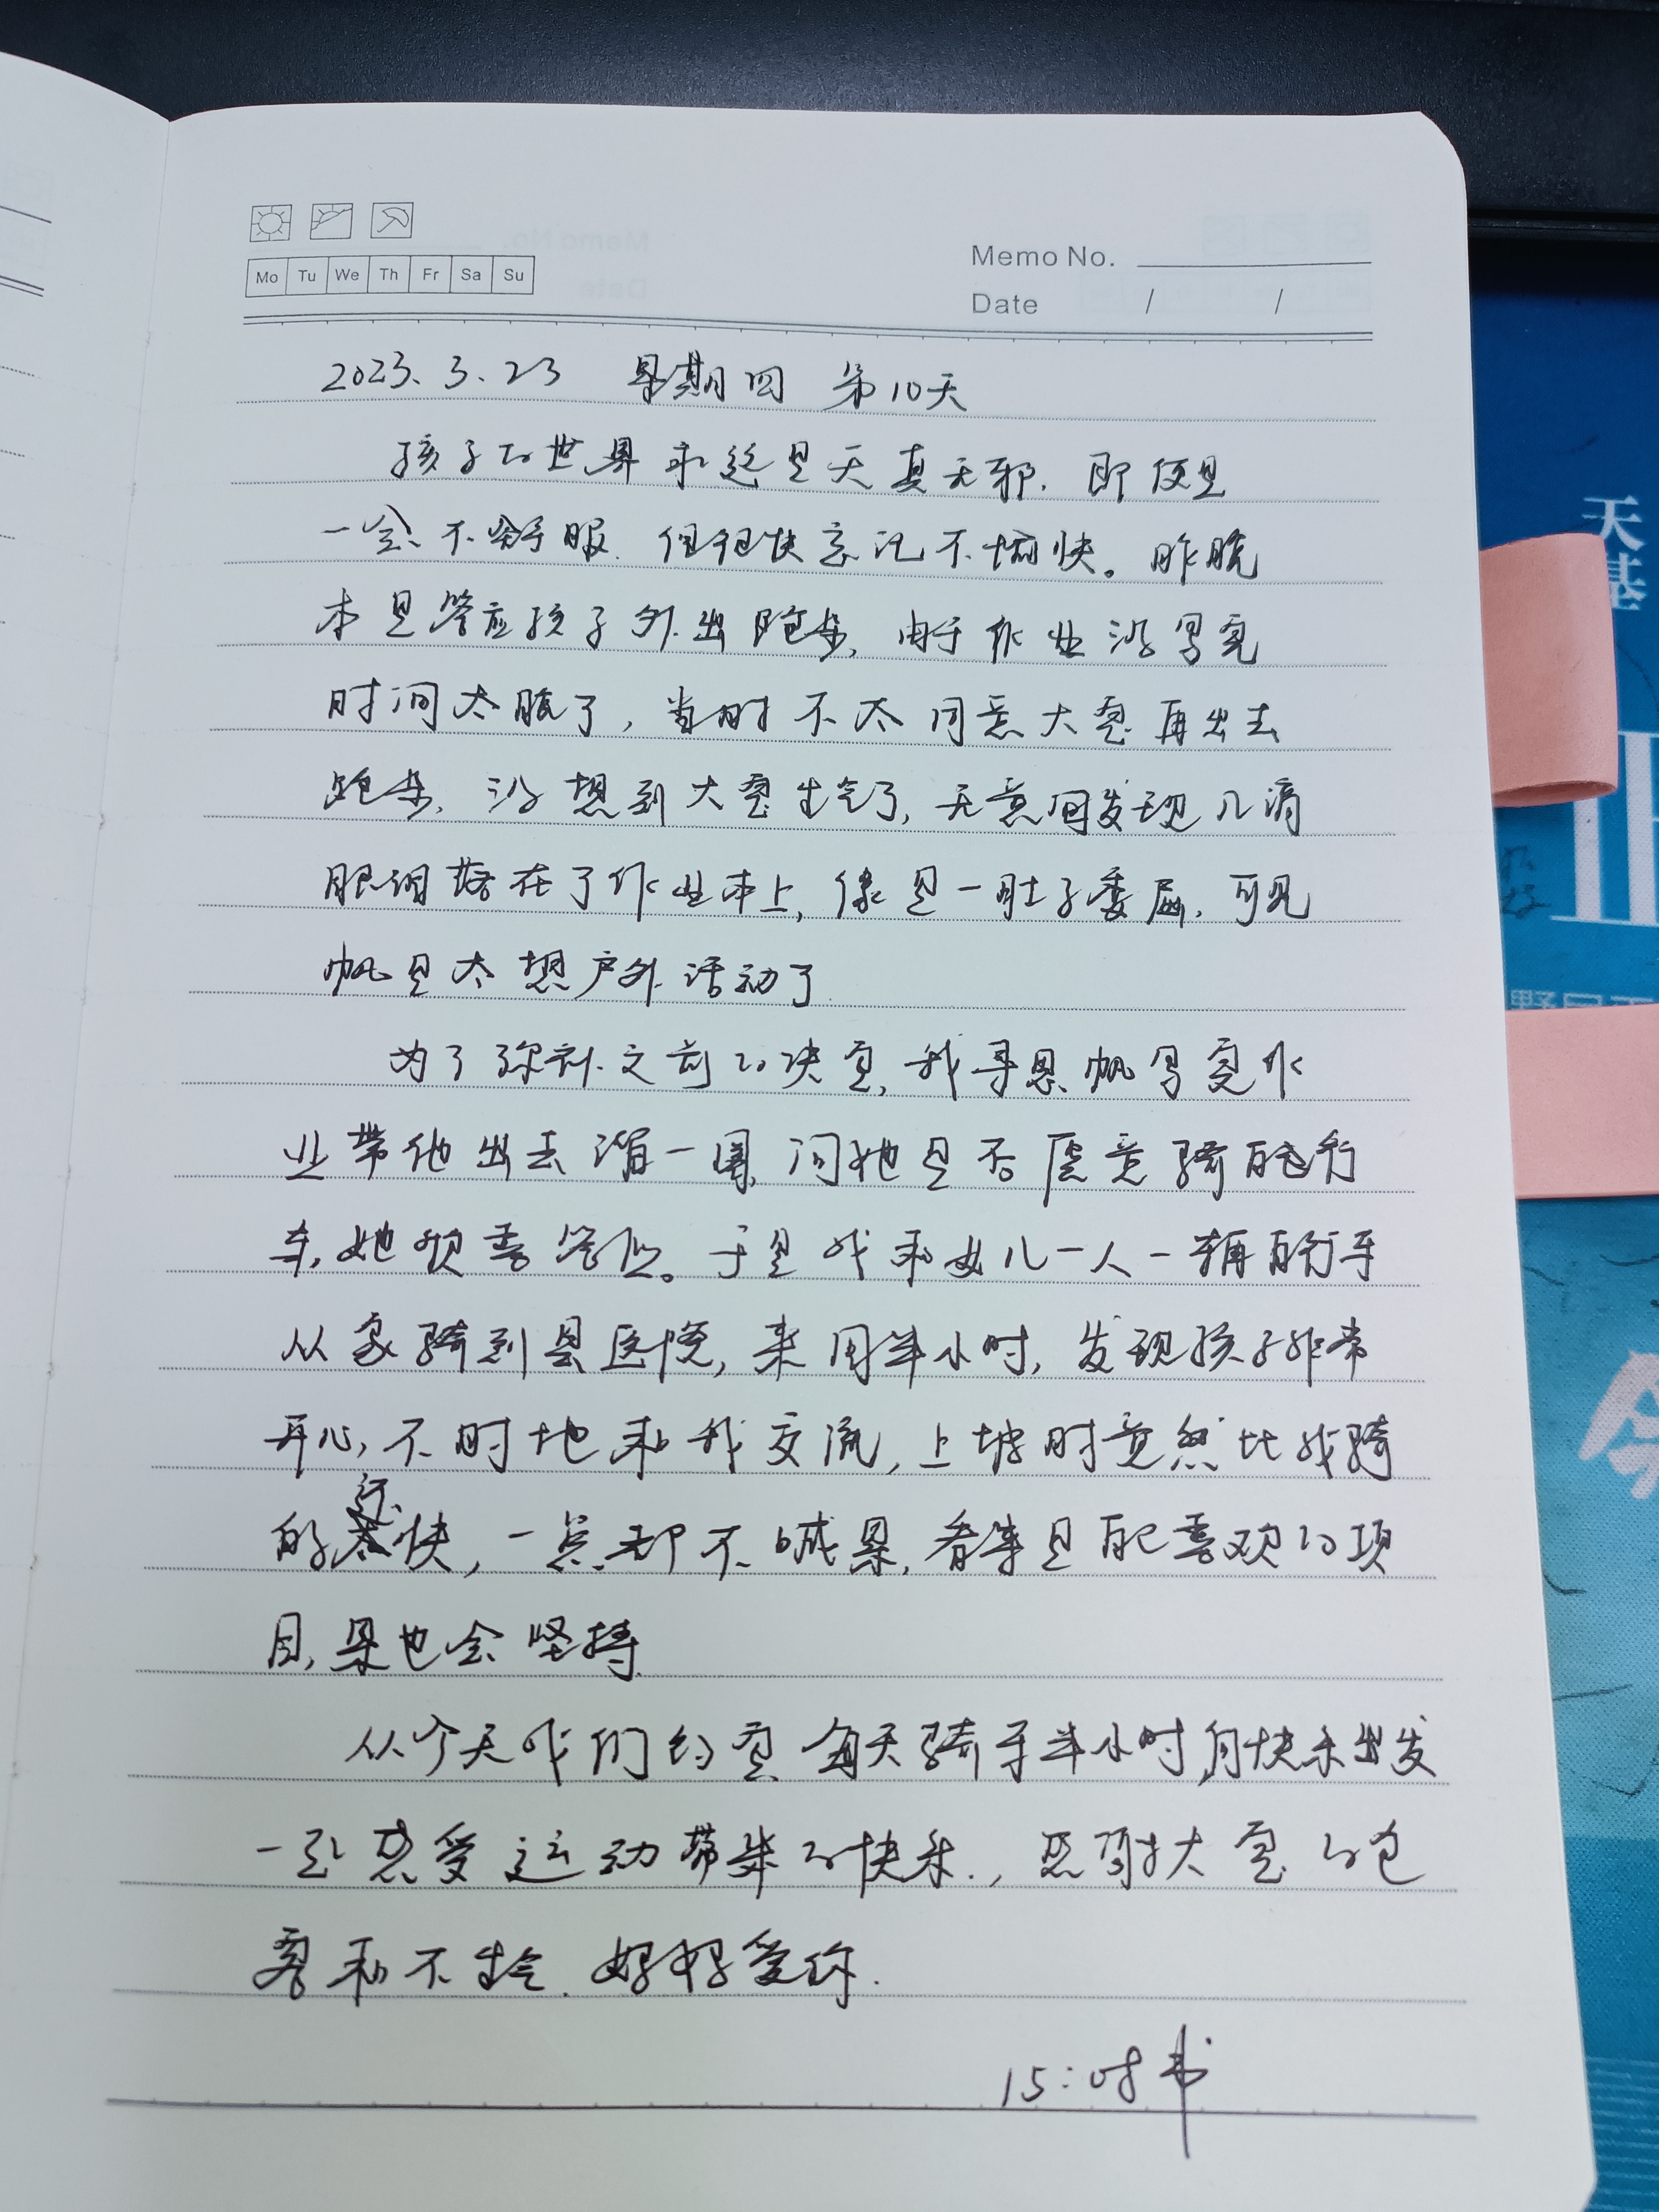 Mo Tu We Th Fr Sa Su
Memo No.
Date / /
2023.3.23 星期四 第10天
孩子的世界永远是天真无邪, 即便是
一会不舒服. 但很快忘记不愉快。昨晚
本是答应孩子外出跑步, 由于作业没写完
时间太晚了, 当时不太同意大宝再出去
跑步, 没想到大宝生气了, 无意间发现几滴
眼泪落在了作业本上, 像是一肚子委屈, 可见
帆是太想户外活动了
为了弥补之前的决定, 我寻思帆写完作
业带他出去溜一圈, 问她是否愿意骑自行
车, 她欣喜答应。于是我和女儿一人一辆自行车
从家骑到县医院, 来用半小时, 发现孩子非常
开心, 不时地和我交流, 上坡时竟然比我骑
的还快, 一点都不喊累, 看来是自己喜欢的项
目, 累也会坚持.
从今天我们约定每天骑车半小时,向快乐出发
一起感受运动带来的快乐., 感谢大宝的包
容和不生气. 妈妈爱你.
15:08书
天基